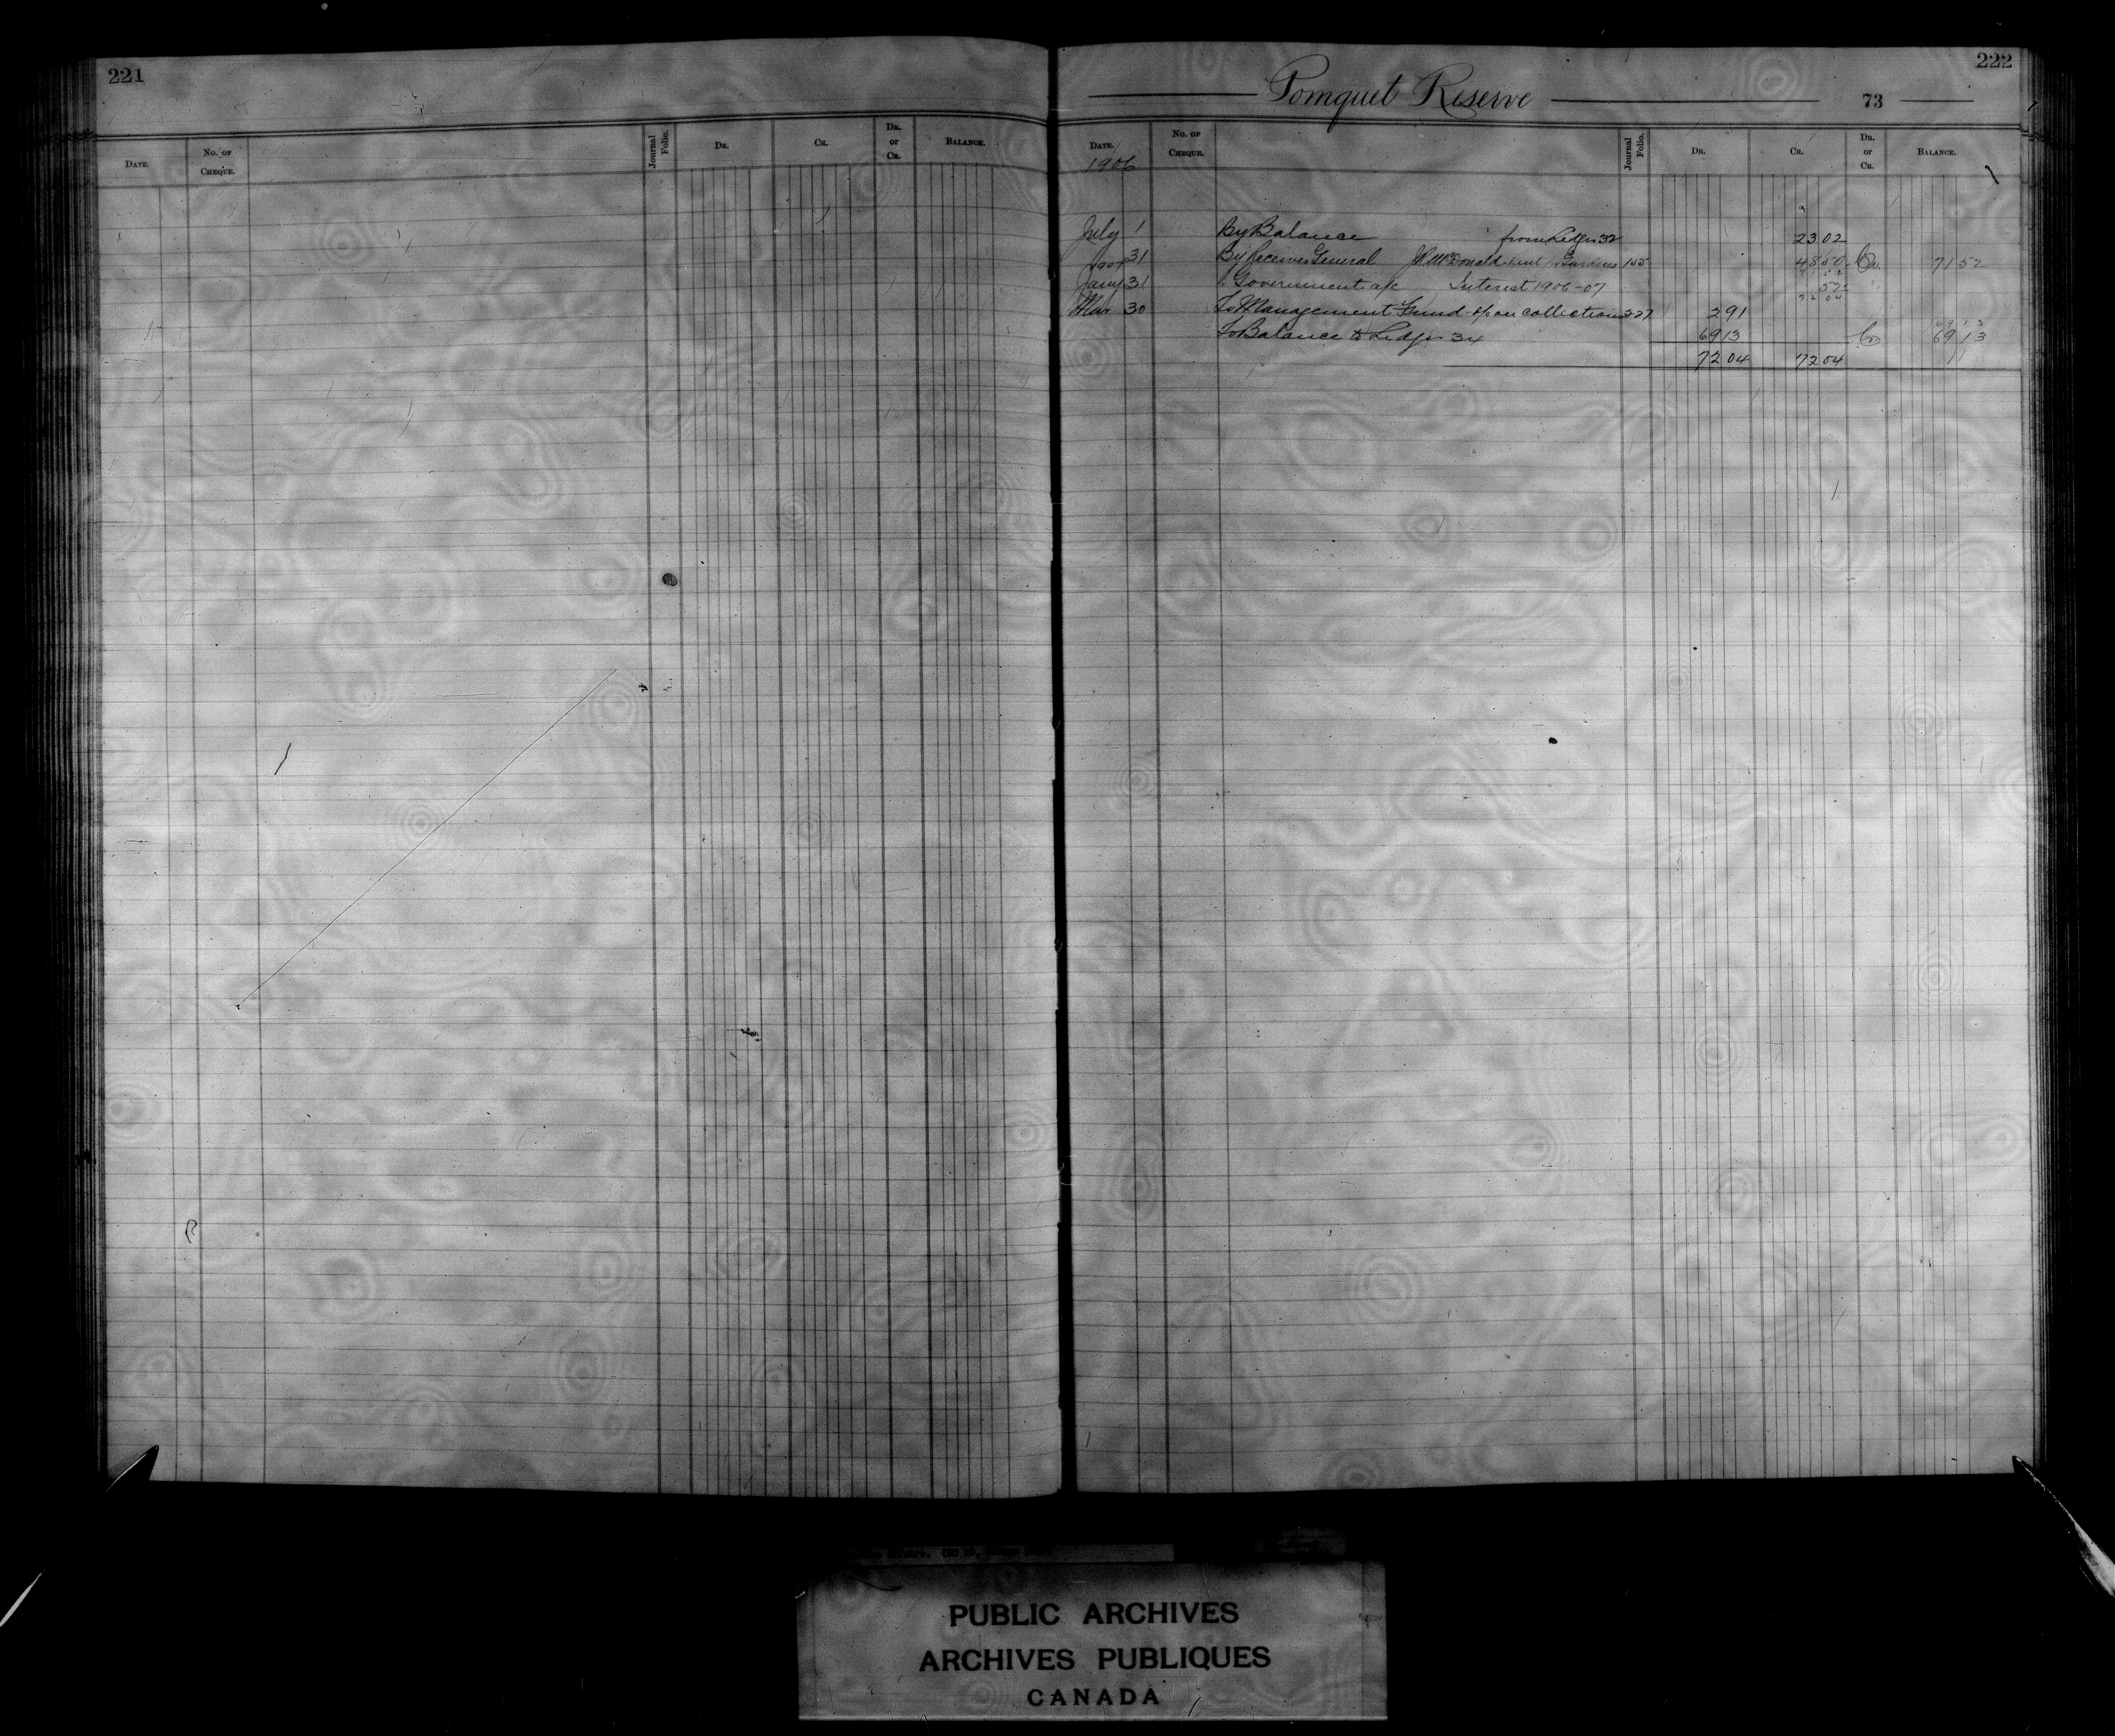 221
DATE.
No. of CHEQUE.
Journal Folio.
DR.
CR.
DR. or CR.
BALANCE.
222
Pomquet Reserve 73
DATE.
No. of CHEQUE.
Journal Folio.
DR.
CR.
DR. or CR.
BALANCE.
1906
July 1 By Balance from Ledger 32 23 02
31 By Receiver General McDonald 155 48 50 Cr. 71 52
1907
Jany 31 " Government a/c Interest 1906-07 52
72 04
Mar 30 To Management Fund on collections 227 2 91
To Balance to Ledger 34 69 13 Cr 69 13
72 04 72 04
PUBLIC ARCHIVES
ARCHIVES PUBLIQUES
CANADA